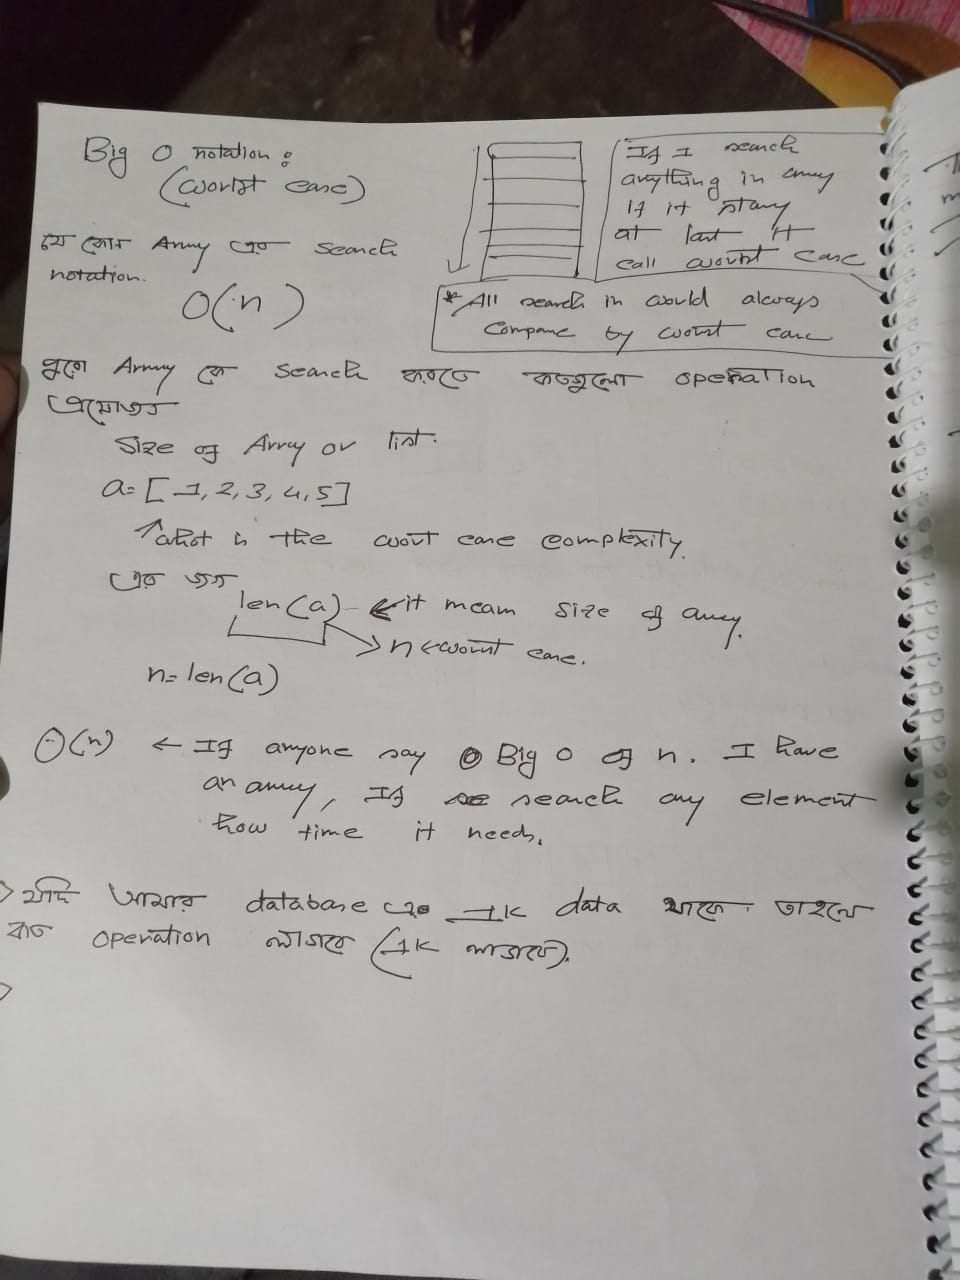 Big O notation :
(worst case)
If I search
anything in array
if it stay
at last it
call worst case
যে কোন Array এর search
notation.
O(n)
* All search in would always
compare by worst case
পুরো Array কে search করতে কতগুলো operation
প্রয়োজন
Size of Array or list.
a= [1, 2, 3, 4, 5]
what is the worst case complexity.
এর জন্য
len(a) ← it mean size of array.
n ← worst case.
n= len(a)
O(n) ← If anyone say Big O of n. I have
an array, If search any element
how time it needs.
যদি আমার database এ 1K data থাকে. তাহলে
কত operation লাগবে (1K লাগবে).